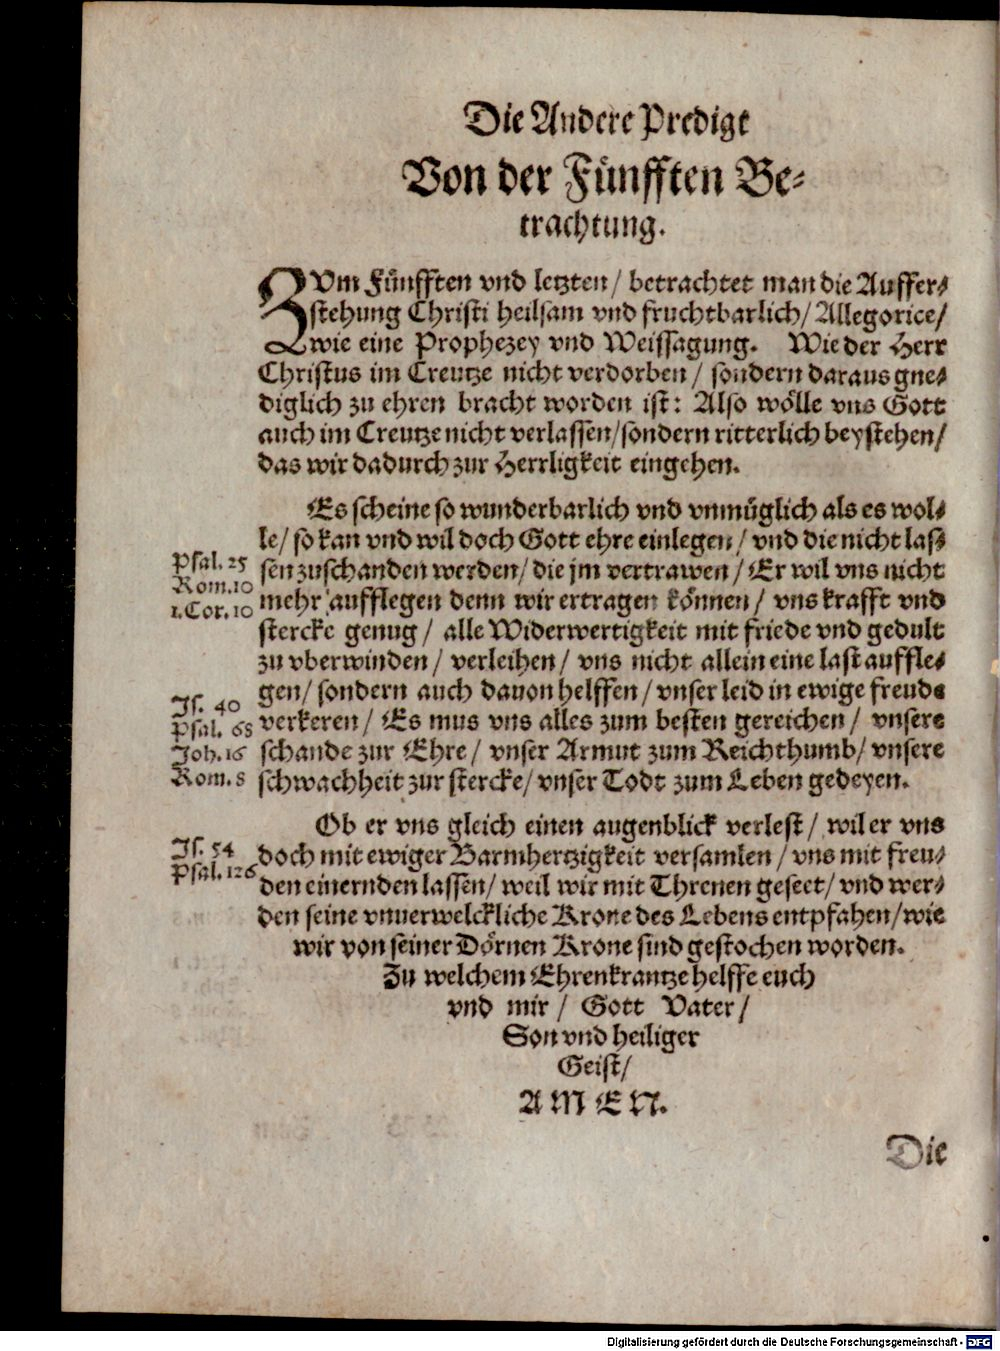 Die Andere Predigt
Von der Fünfften Be-
trachtung.
ZVm Fünfften vnd letzten / betrachtet man die Auffer-
stehung Christi heilsam vnd fruchtbarlich / Allegorice /
wie eine Prophezey vnd Weissagung. Wie der Herr
Christus im Creutze nicht verdorben / sondern daraus gne-
diglich zu ehren bracht worden ist: Also wölle vns Gott
auch im Creutze nicht verlassen / sondern ritterlich beystehen /
das wir dadurch zur Herrligkeit eingehen.
Es scheine so wunderbarlich vnd vnmüglich als es wol-
le / so kan vnd wil doch Gott ehre einlegen / vnd die nicht las-
Psal. 25
sen zuschanden werden / die jm vertrawen / Er wil vns nicht
Rom. 10
mehr aufflegen denn wir ertragen können / vns krafft vnd
1. Cor. 10
stercke genug / alle Widerwertigkeit mit friede vnd gedult
zu vberwinden / verleihen / vns nicht allein eine last auffle-
gen / sondern auch dauon helffen / vnser leid in ewige freude
Js. 40
verkeren / Es mus vns alles zum besten gereichen / vnsere
Psal. 68
schande zur Ehre / vnser Armut zum Reichthumb / vnsere
Joh. 16
schwachheit zur stercke / vnser Todt zum Leben gedeyen.
Rom. 8
Ob er vns gleich einen augenblick verlest / wil er vns
doch mit ewiger Barmhertzigkeit versamlen / vns mit freu-
Js. 54
den einernden lassen / weil wir mit Threnen geseet / vnd wer-
Psal. 126
den seine vnuerwelckliche Krone des Lebens entpfahen / wie
wir von seiner Dörnen Krone sind gestochen worden.
Zu welchem Ehrenkrantze helffe euch
vnd mir / Gott Vater /
Son vnd heiliger
Geist /
AMEN.
Die
Digitalisierung gefördert durch die Deutsche Forschungsgemeinschaft - DFG